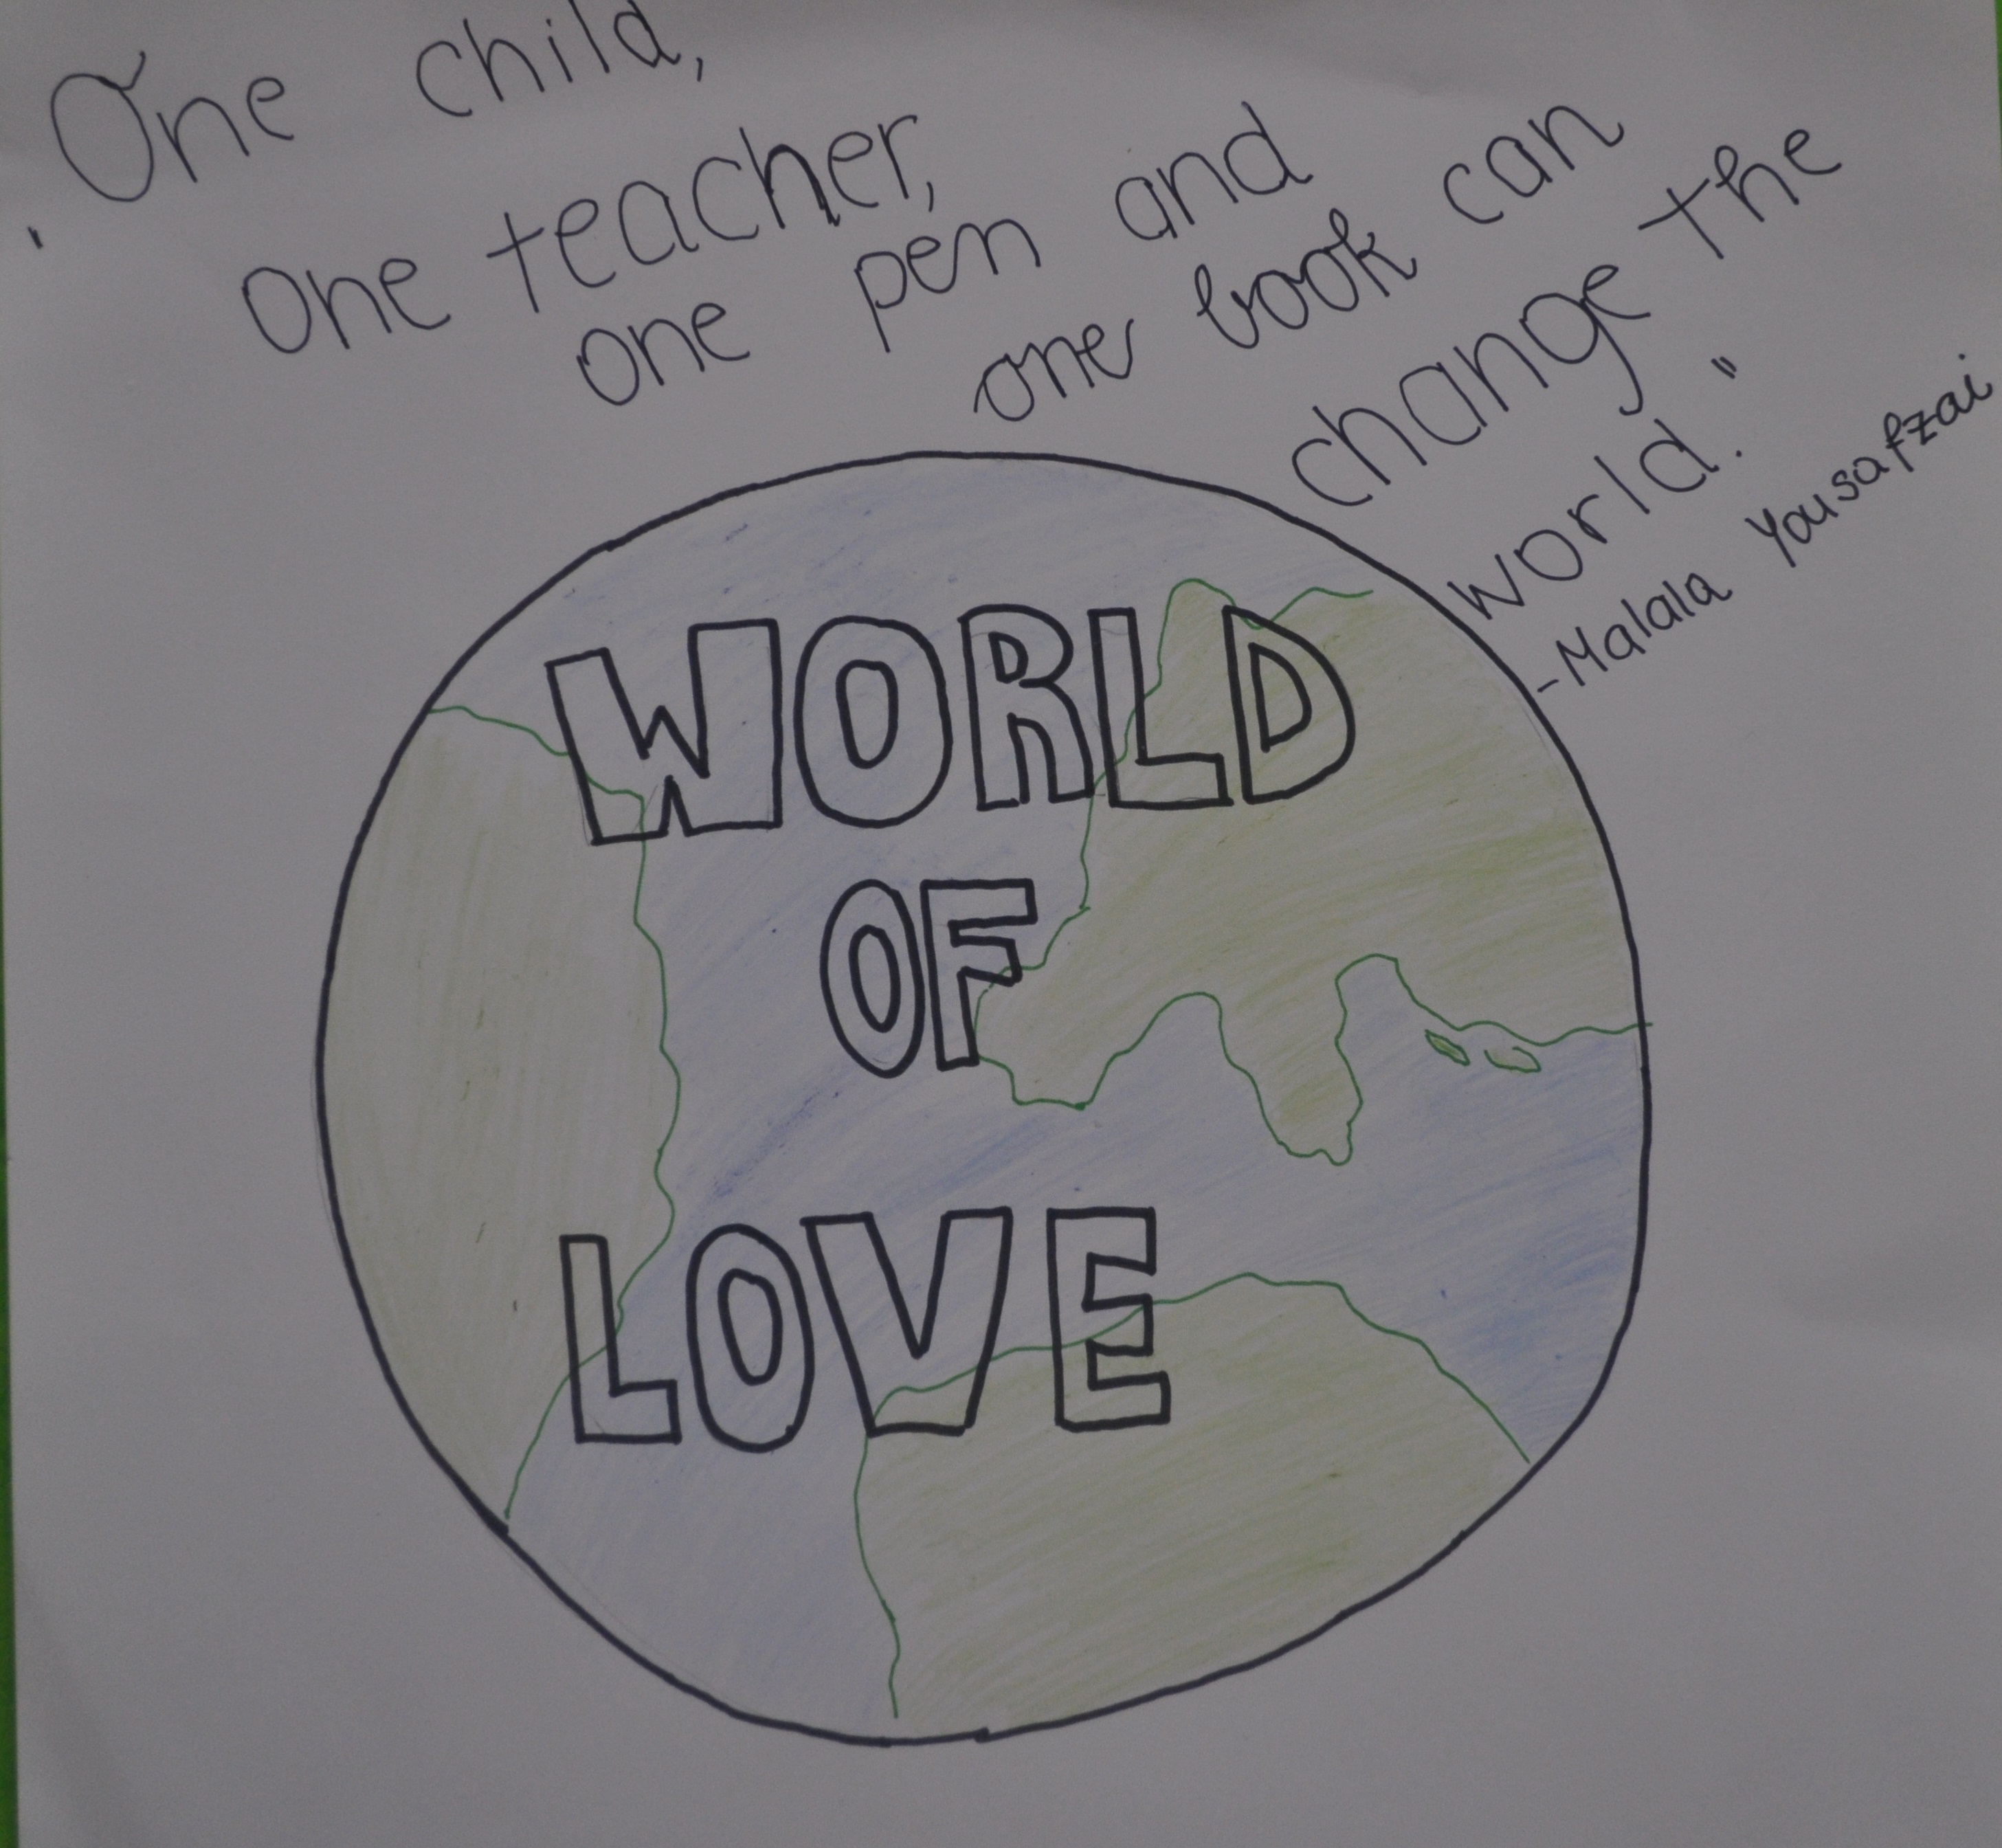 "One child,
one teacher,
one pen and
one book can
change the
world."
-Malala Yousafzai
WORLD
OF
LOVE